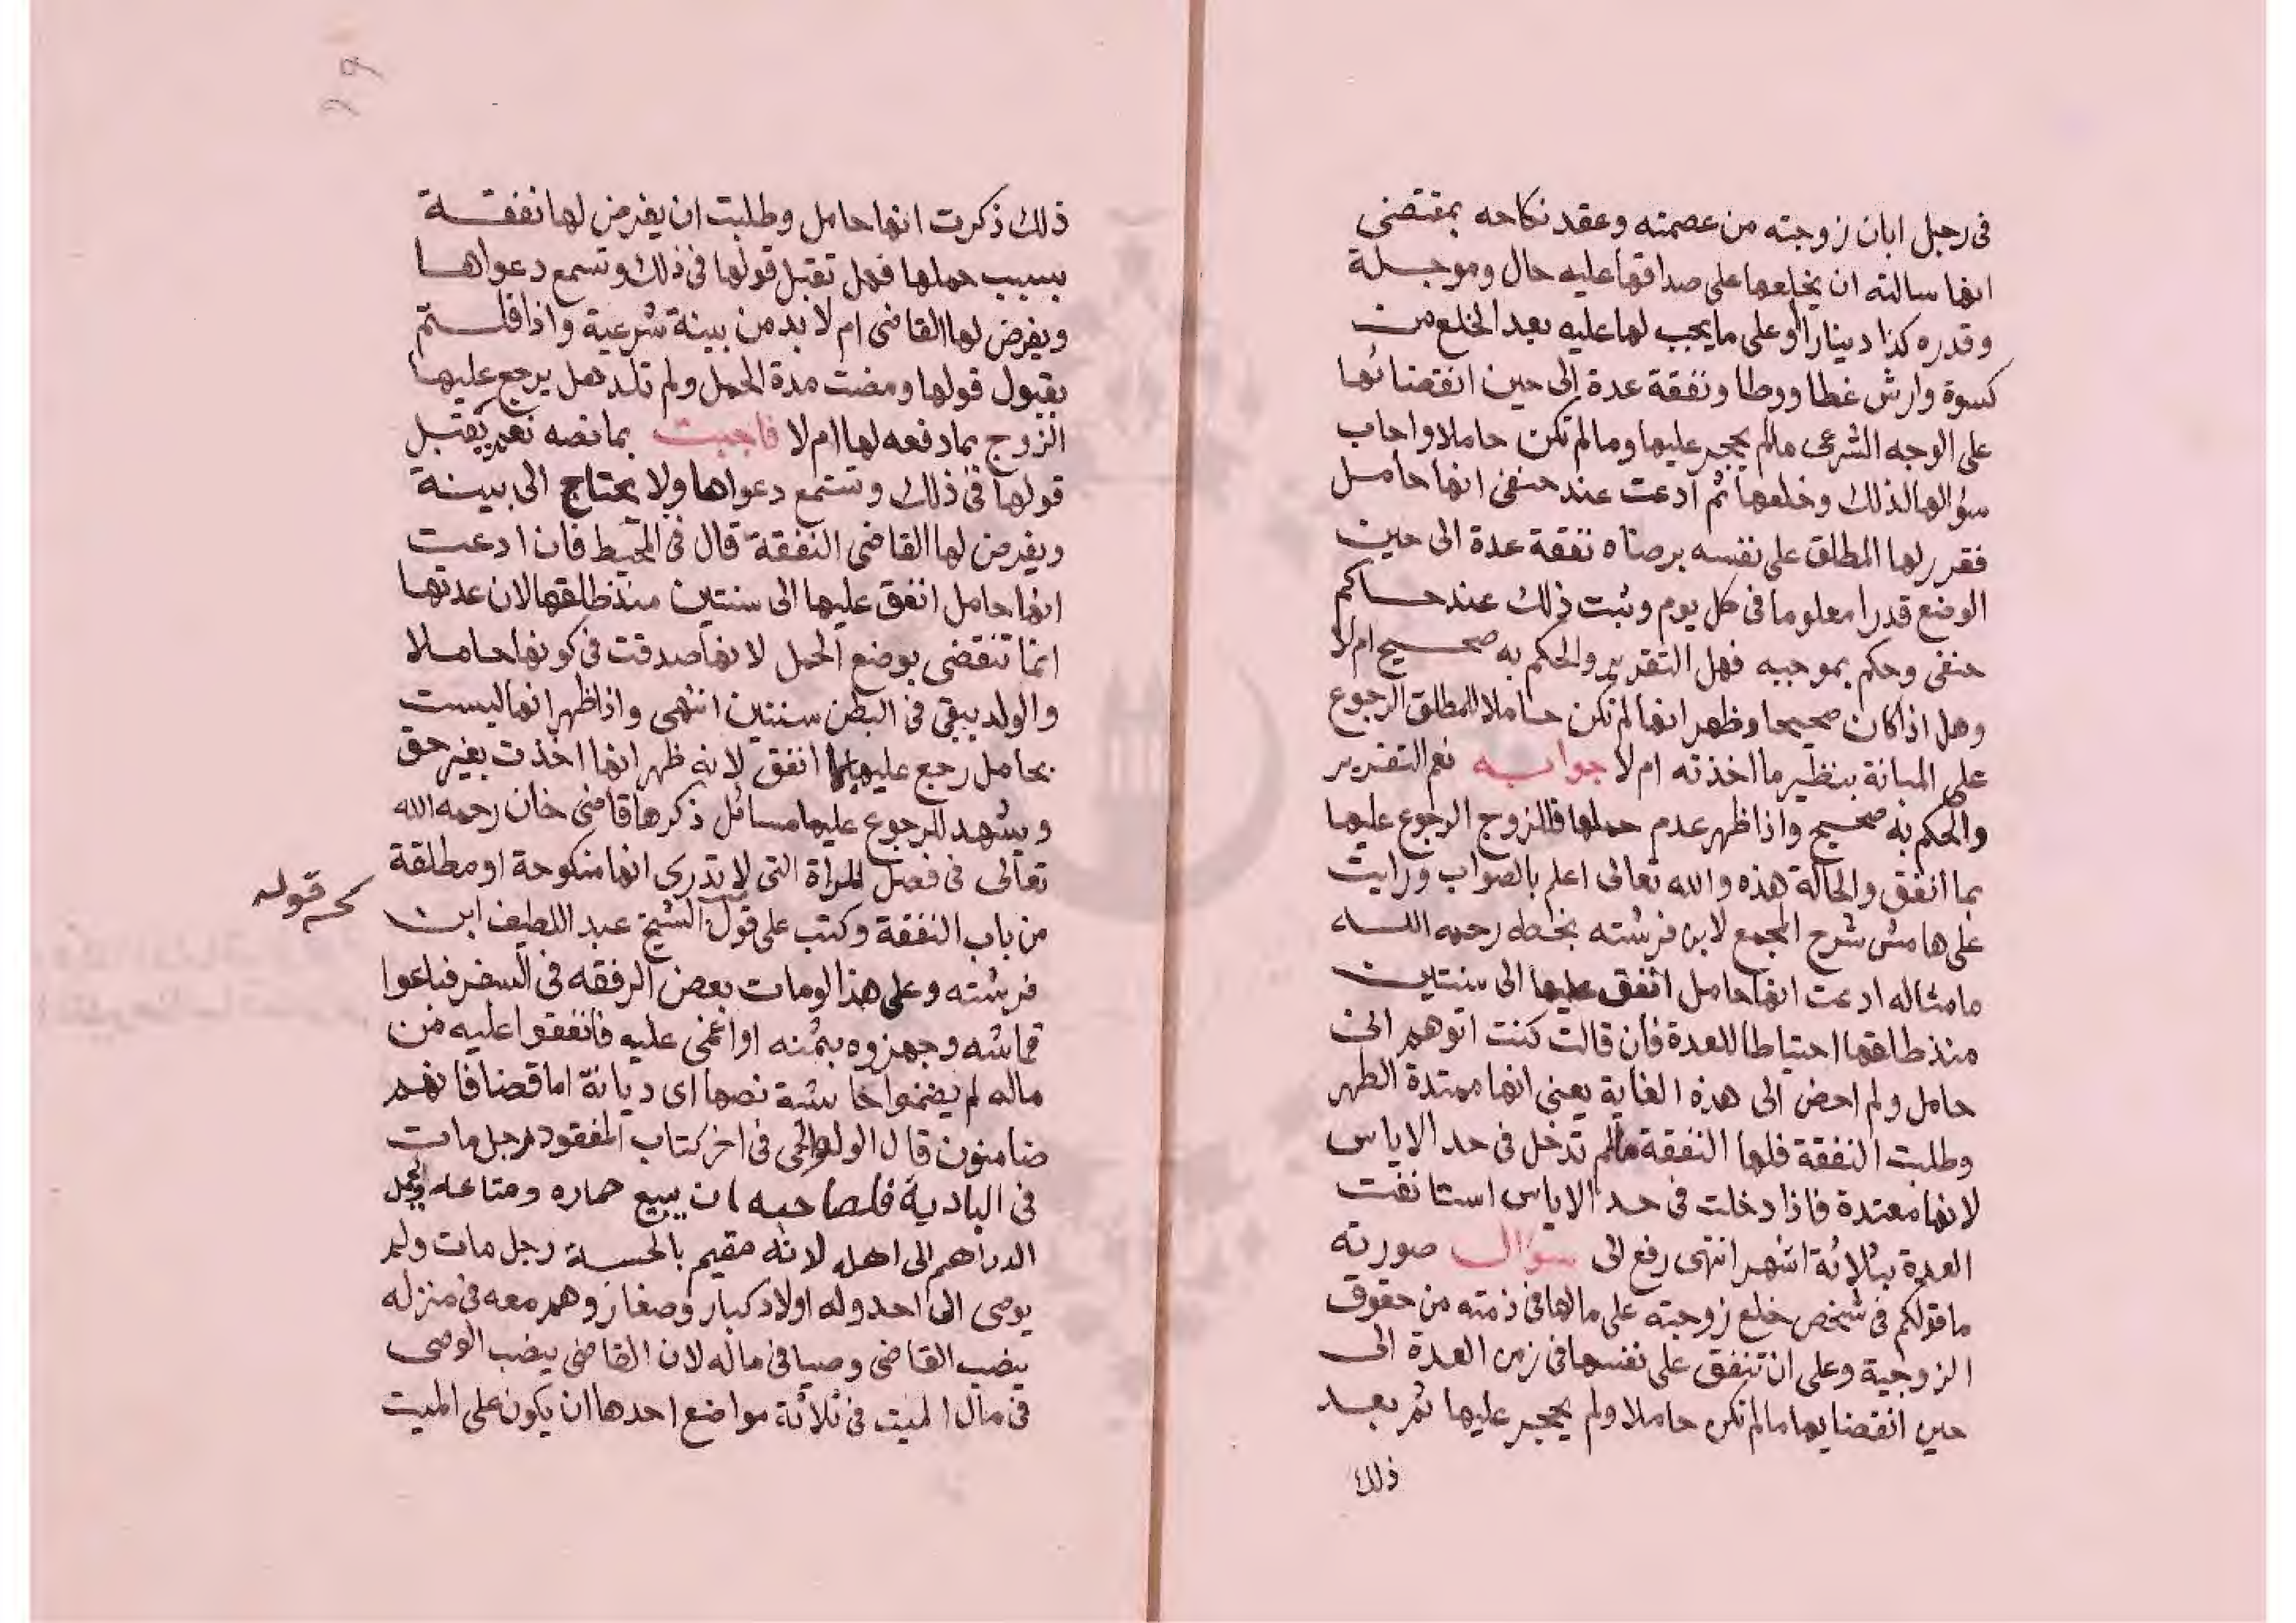 فى رجل ابان زوجته من عصمته وعقد نكاحه بمقتضى
انها سالته ان يخلعها على صداقها عليه حال وموجلة
وقدره كذا دينارا وعلى ما يجب لها عليه بعد الخلع من
كسوة وارش غطا ووطا ونفقة عدة الى حين انقضائها
على الوجه الشرعى مالم يحجر عليها ومالم تكن حاملا واجاب
سؤالها لذلك وخلعها ثم ادعت عند حنفى انها حامل
فقرر لها المطلق على نفسه برضاه نفقة عدة الى حين
الوضع قدرا معلوما فى كل يوم وثبت ذلك عند حاكم
حنفى وحكم بموجبه فهل التقدير والحكم به صحيح ام لا
وهل اذا كان صحيحا وظهر انها لم تكن حاملا للمطلق الرجوع
على المبانة بنظير ما اخذته ام لا جوابه نعم التقدير
والحكم به صحيح واذا ظهر عدم حملها فللزوج الرجوع عليها
بما انفق والحالة هذه والله تعالى اعلم بالصواب ورايت
على هامش شرح المجمع لابن فرشته بخطه رحمه الله
ما مثاله ادعت انها حامل انفق عليها الى سنتين
منذ طلقها احتياطا للعدة فان قالت كنت اتوهم انى
حامل ولم احض الى هذه الغاية يعنى انها ممتدة الطهر
وطلبت النفقة فلها النفقة مالم تدخل فى حد الاياس
لانها معتدة فاذا دخلت فى حد الاياس استانفت
العدة بثلاثة اشهر انتهى رفع الى سؤال صورته
ما قولكم فى شخص خلع زوجته على مالها فى ذمته من حقوق
الزوجية وعلى ان تنفق على نفسها فى زمن العدة الى
حين انقضايها مالم تكن حاملا ولم يحجر عليها ثم بعد
ذلك
٦٩
ذلك ذكرت انها حامل وطلبت ان يفرض لها نفقة
بسبب حملها فهل تقبل قولها فى ذلك وتسمع دعواها
ويفرض لها القاضى ام لا بد من بينة شرعية واذا قلتم
بقبول قولها ومضت مدة الحمل ولم تلد هل يرجع عليها
الزوج بما دفعه لها ام لا فاجبت بما نصه نعم يقبل
قولها فى ذلك وتستمع دعواها ولا يحتاج الى بينة
ويفرض لها القاضى النفقة قال فى المحيط فان ادعت
انها حامل انفق عليها الى سنتين منذ طلقها لان عدتها
انما تنقضى بوضع الحمل لانها صدقت فى كونها حاملا
والولد يبقى فى البطن سنتين انتهى واذا ظهر انها ليست
بحامل رجع عليها بما انفق لانه ظهر انها اخذت بغير حق
ويشهد للرجوع عليها مسائل ذكرها قاضى خان رحمه الله
تعالى فى فصل المراة التى لا تدرى انها منكوحة او مطلقة
من باب النفقة وكتب على قول الشيخ عبد اللطيف ابن
قوله
فرشته وعلى هذا لو مات بعض الرفقه فى السفر فباعوا
قماشه وجهزوه بثمنه او اغمى عليه فانفقوا عليه من
ماله لم يضمنوا حاشية نصها اى ديانة اما قضا فانهم
ضامنون قال الولوالجى فى اخر كتاب المفقود رجل مات
فى البادية فلصاحبه ان يبيع حماره ومتاعه ويحمل
الدراهم الى اهله لانه مقيم بالحسبة رجل مات ولم
يوصى الى احد وله اولاد كبار وصغار وهم معه فى منزله
ينصب القاضى وصيا فى ماله لان القاضى ينصب الوصى
فى مال الميت فى ثلاثة مواضع احدها ان يكون على الميت